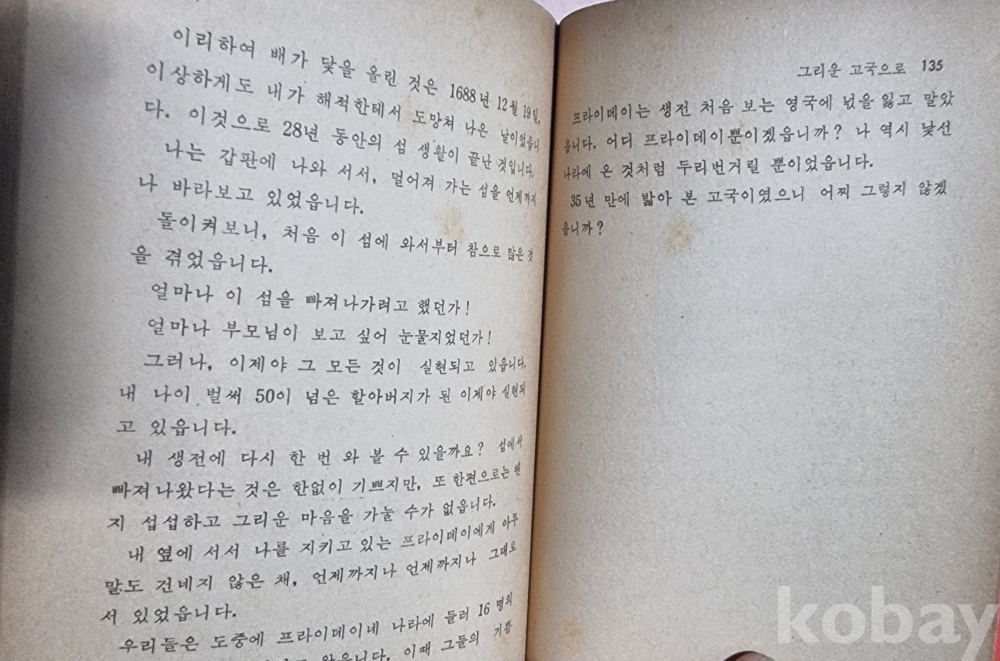 이리하여 배가 닻을 올린 것은 1688년 12월 19일,
이상하게도 내가 해적한테서 도망쳐 나온 날이었읍니
다. 이것으로 28년 동안의 섬 생활이 끝난 것입니다.
나는 갑판에 나와 서서, 멀어져 가는 섬을 언제까지
나 바라보고 있었읍니다.
돌이켜보니, 처음 이 섬에 와서부터 참으로 많은 것
을 겪었읍니다.
얼마나 이 섬을 빠져나가려고 했던가!
얼마나 부모님이 보고 싶어 눈물지었던가!
그러나, 이제야 그 모든 것이 실현되고 있읍니다.
내 나이 벌써 50이 넘은 할아버지가 된 이제야 실현되
고 있읍니다.
내 생전에 다시 한 번 와 볼 수 있을까요? 섬에서
빠져나왔다는 것은 한없이 기쁘지만, 또 한편으로는 웬
지 섭섭하고 그리운 마음을 가눌 수가 없읍니다.
내 옆에 서서 나를 지키고 있는 프라이데이에게 아무
말도 건네지 않은 채, 언제까지나 언제까지나 그대로
서 있었읍니다.
우리들은 도중에 프라이데이네 나라에 들러 16 명의
았읍니다. 이때 그들의 기쁨
그리운 고국으로 135
프라이데이는 생전 처음 보는 영국에 넋을 잃고 말았
읍니다. 어디 프라이데이뿐이겠읍니까? 나 역시 낯선
나라에 온 것처럼 두리번거릴 뿐이었읍니다.
35년 만에 밟아 본 고국이였으니 어찌 그렇지 않겠
읍니까?
kobay